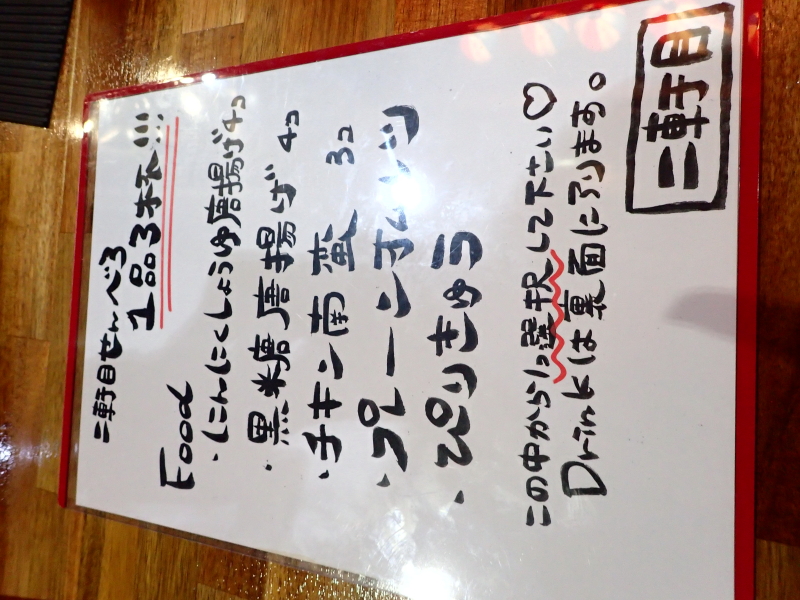 二軒目せんべろ
1品3杯!!!
Food
・にんにくしょうゆ唐揚げ4コ
・黒米唐揚げ 4コ
・チキン南蛮 3コ
・プレーンチヂミ
・ぴりきゅう
この中から1つ選択して下さい♡
Drinkは裏面にあります。
二軒目